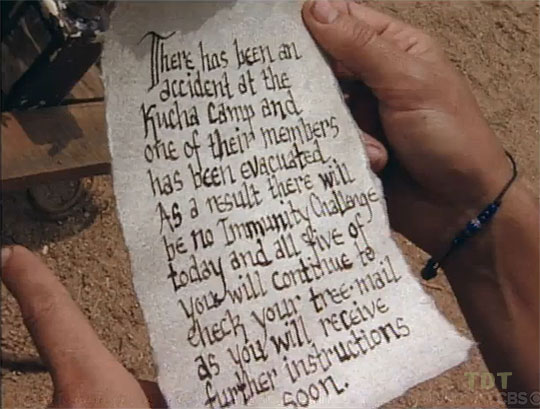 There has been an
accident at the
Kucha Camp and
one of their members
has been evacuated.
As a result there will
be no Immunity Challenge
today and all five of
you will continue to
check your tree-mail
as you will receive
further instructions
soon.
TDT
CBS